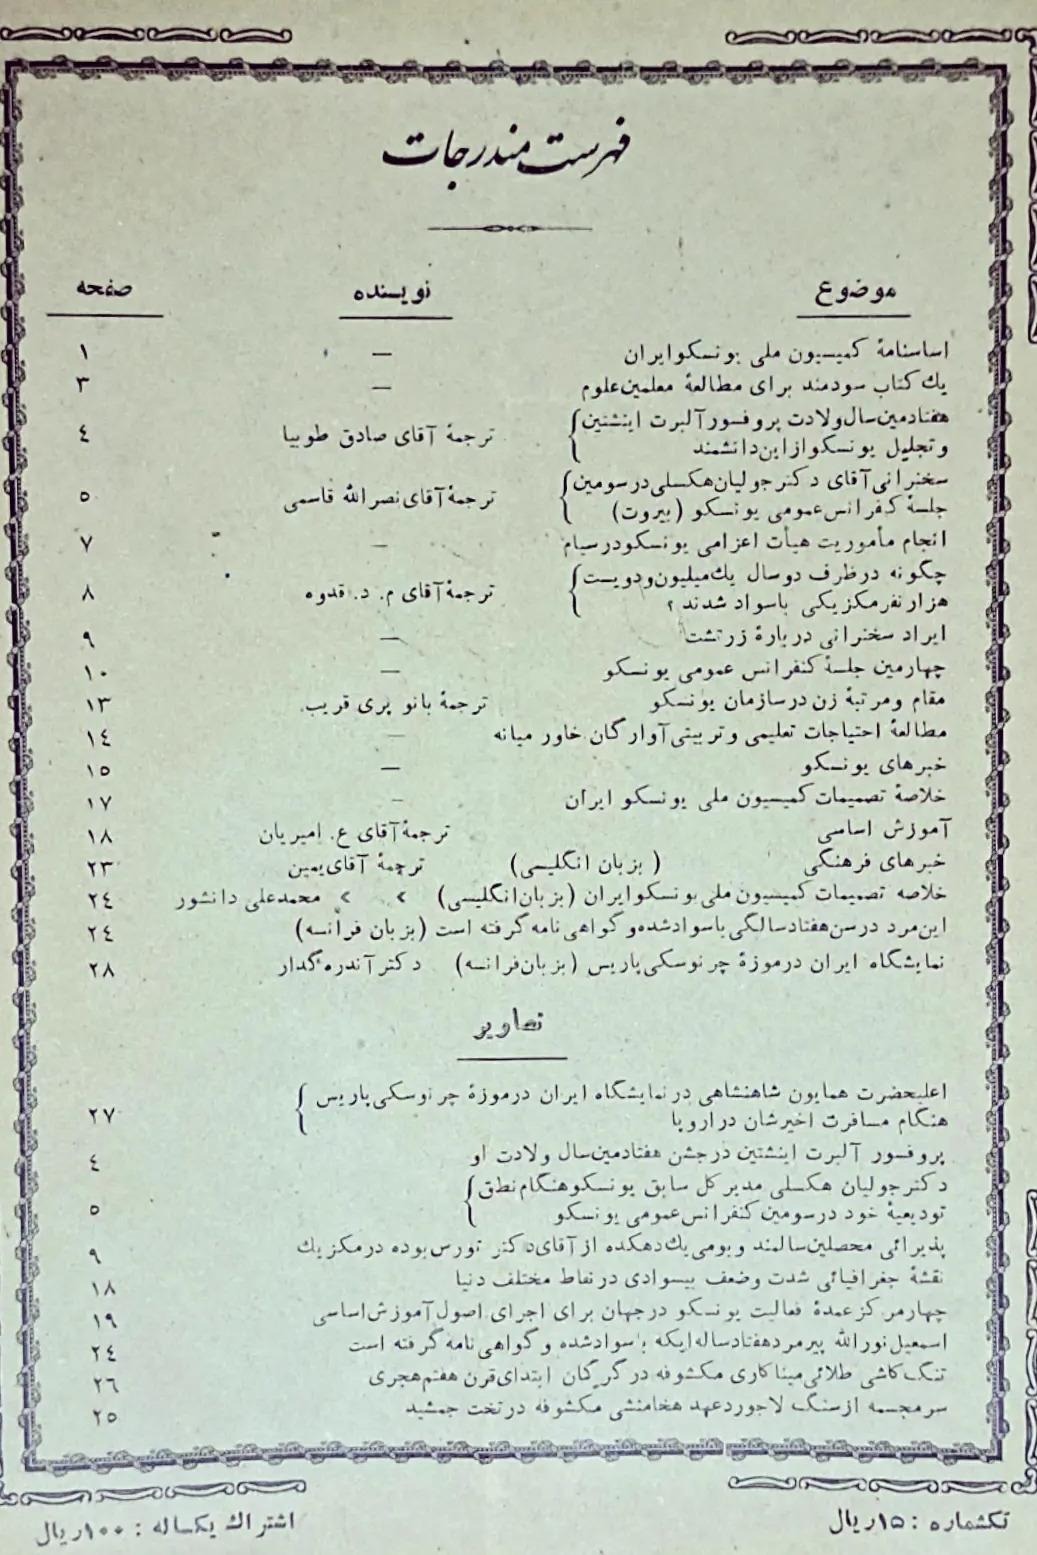 فهرست مندرجات
موضوع نویسنده صفحه
اساسنامهٔ کمیسیون ملی یونسکو ایران — ۱
یك کتاب سودمند برای مطالعهٔ معلمین علوم — ۳
هفتادمین سال ولادت پروفسور آلبرت اینشتین
و تجلیل یونسکو از این دانشمند } ترجمهٔ آقای صادق طوبیا ٤
سخنرانی آقای دکتر جولیان هکسلی در سومین
جلسهٔ کنفرانس عمومی یونسکو (بیروت) } ترجمهٔ آقای نصرالله قاسمی ٥
انجام مأموریت هیأت اعزامی یونسکو در سیام — ۷
چگونه در ظرف دو سال یك میلیون و دویست
هزار نفر مکزیکی باسواد شدند ؟ } ترجمهٔ آقای م. د. قدوه ۸
ایراد سخنرانی دربارهٔ زرتشت — ۹
چهارمین جلسهٔ کنفرانس عمومی یونسکو — ۱۰
مقام و مرتبهٔ زن در سازمان یونسکو ترجمهٔ بانو پری قریب ۱۳
مطالعهٔ احتیاجات تعلیمی و تربیتی آوارگان خاور میانه — ۱٤
خبرهای یونسکو — ۱٥
خلاصهٔ تصمیمات کمیسیون ملی یونسکو ایران — ۱۷
آموزش اساسی ترجمهٔ آقای ع. امیریان ۱۸
خبرهای فرهنگی (بزبان انگلیسی) ترجمهٔ آقای یمین ۲۳
خلاصه تصمیمات کمیسیون ملی یونسکو ایران (بزبان انگلیسی) » » محمدعلی دانشور ۲٤
این مرد در سن هفتاد سالگی باسواد شده و گواهی نامه گرفته است (بزبان فرانسه) ۲٤
نمایشگاه ایران در موزهٔ چرنوسکی پاریس (بزبان فرانسه) دکتر آندره گدار ۲۸
تصاویر
اعلیحضرت همایون شاهنشاهی در نمایشگاه ایران در موزهٔ چرنوسکی پاریس
هنگام مسافرت اخیرشان در اروپا } ۲۷
پروفسور آلبرت اینشتین در جشن هفتادمین سال ولادت او ٤
دکتر جولیان هکسلی مدیر کل سابق یونسکو هنگام نطق
تودیعیهٔ خود در سومین کنفرانس عمومی یونسکو } ٥
پذیرائی محصلین سالمند و بومی یك دهکده از آقای دکتر تورس بوده در مکزیك ۹
نقشهٔ جغرافیائی شدت و ضعف بیسوادی در نقاط مختلف دنیا ۱۸
چهار مرکز عمدهٔ فعالیت یونسکو در جهان برای اجرای اصول آموزش اساسی ۱۹
اسمعیل نورالله پیرمرد هفتاد ساله ایکه باسواد شده و گواهی نامه گرفته است ۲٤
تنگ کاشی طلائی میناکاری مکشوفه در گرگان ابتدای قرن هفتم هجری ۲٦
سر مجسمه از سنگ لاجورد عهد هخامنشی مکشوفه در تخت جمشید ۲٥
تکشماره : ۱٥ ریال
اشتراك یکساله : ۱۰۰ ریال